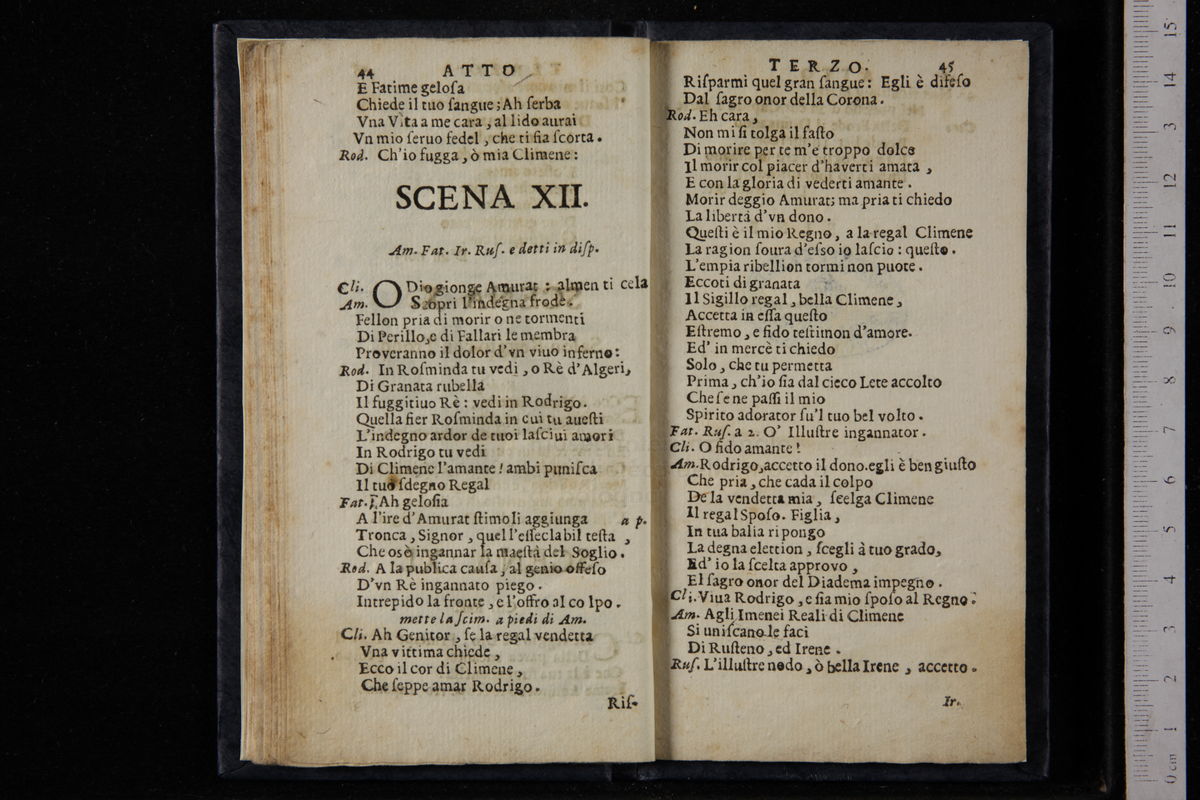 44 ATTO
E Fatime geloſa
Chiede il tuo ſangue; Ah ſerba
Vna Vita a me cara, al lido aurai
Vn mio ſeruo fedel, che ti ſia ſcorta.
Rod. Ch'io fugga, ò mia Climene:
SCENA XII.
Am. Fat. Ir. Ruſ. e detti in diſp.
Cli. O Dio gionge Amurat: almen ti cela
Am. Scopri l'indegna frode.
Fellon pria di morir o ne tormenti
Di Perillo, e di Fallari le membra
Proveranno il dolor d'vn viuo inferno:
Rod. In Roſminda tu vedi, o Rè d'Algeri,
Di Granata rubella
Il fuggitiuo Rè: vedi in Rodrigo.
Quella fier Roſminda in cui tu aueſti
L'indegno ardor de tuoi laſciui amori
In Rodrigo tu vedi
Di Climene l'amante! ambi puniſca
Il tuo ſdegno Regal
Fat. Ah geloſia
A l'ire d'Amurat ſtimoli aggiunga a p.
Tronca, Signor, quel l'eſſeclabil teſta,
Che osò ingannar la maeſtà del Soglio.
Rod. A la publica cauſa, al genio offeſo
D'vn Rè ingannato piego.
Intrepido la fronte, e l'offro al co lpo.
mette la ſcim. a piedi di Am.
Cli. Ah Genitor, ſe la regal vendetta
Vna vittima chiede,
Ecco il cor di Climene,
Che ſeppe amar Rodrigo.
Riſ-
TERZO. 45
Riſparmi quel gran ſangue: Egli è difeſo
Dal ſagro onor della Corona.
Rod. Eh cara,
Non mi ſi tolga il faſto
Di morire per te m'è troppo dolce
Il morir col piacer d'haverti amata,
E con la gloria di vederti amante.
Morir deggio Amurat; ma pria ti chiedo
La libertà d'vn dono.
Queſti è il mio Regno, a la regal Climene
La ragion ſoura d'eſso io laſcio: queſto.
L'empia ribellion tormi non puote.
Eccoti di granata
Il Sigillo regal, bella Climene,
Accetta in eſſa queſto
Eſtremo, e fido teſtimon d'amore.
Ed' in mercè ti chiedo
Solo, che tu permetta
Prima, ch'io ſia dal cieco Lete accolto
Che ſe ne paſſi il mio
Spirito adorator ſu'l tuo bel volto.
Fat. Ruſ. a 2. O' Illuſtre ingannator.
Cli. O fido amante!
Am. Rodrigo, accetto il dono. egli è ben giuſto
Che pria, che cada il colpo
De la vendetta mia, ſcelga Climene
Il regal Spoſo. Figlia,
In tua balia ripongo
La degna elettion, ſcegli à tuo grado,
Ed' io la ſcelta approvo,
El ſagro onor del Diadema impegno.
Cli. Viua Rodrigo, e ſia mio ſpoſo al Regno.
Am. Agli Imenei Reali di Climene
Si uniſcano le faci
Di Ruſteno, ed Irene.
Ruſ. L'illuſtre nodo, ò bella Irene, accetto.
Ir.
0 cm 1 2 3 4 5 6 7 8 9 10 11 12 13 14 15